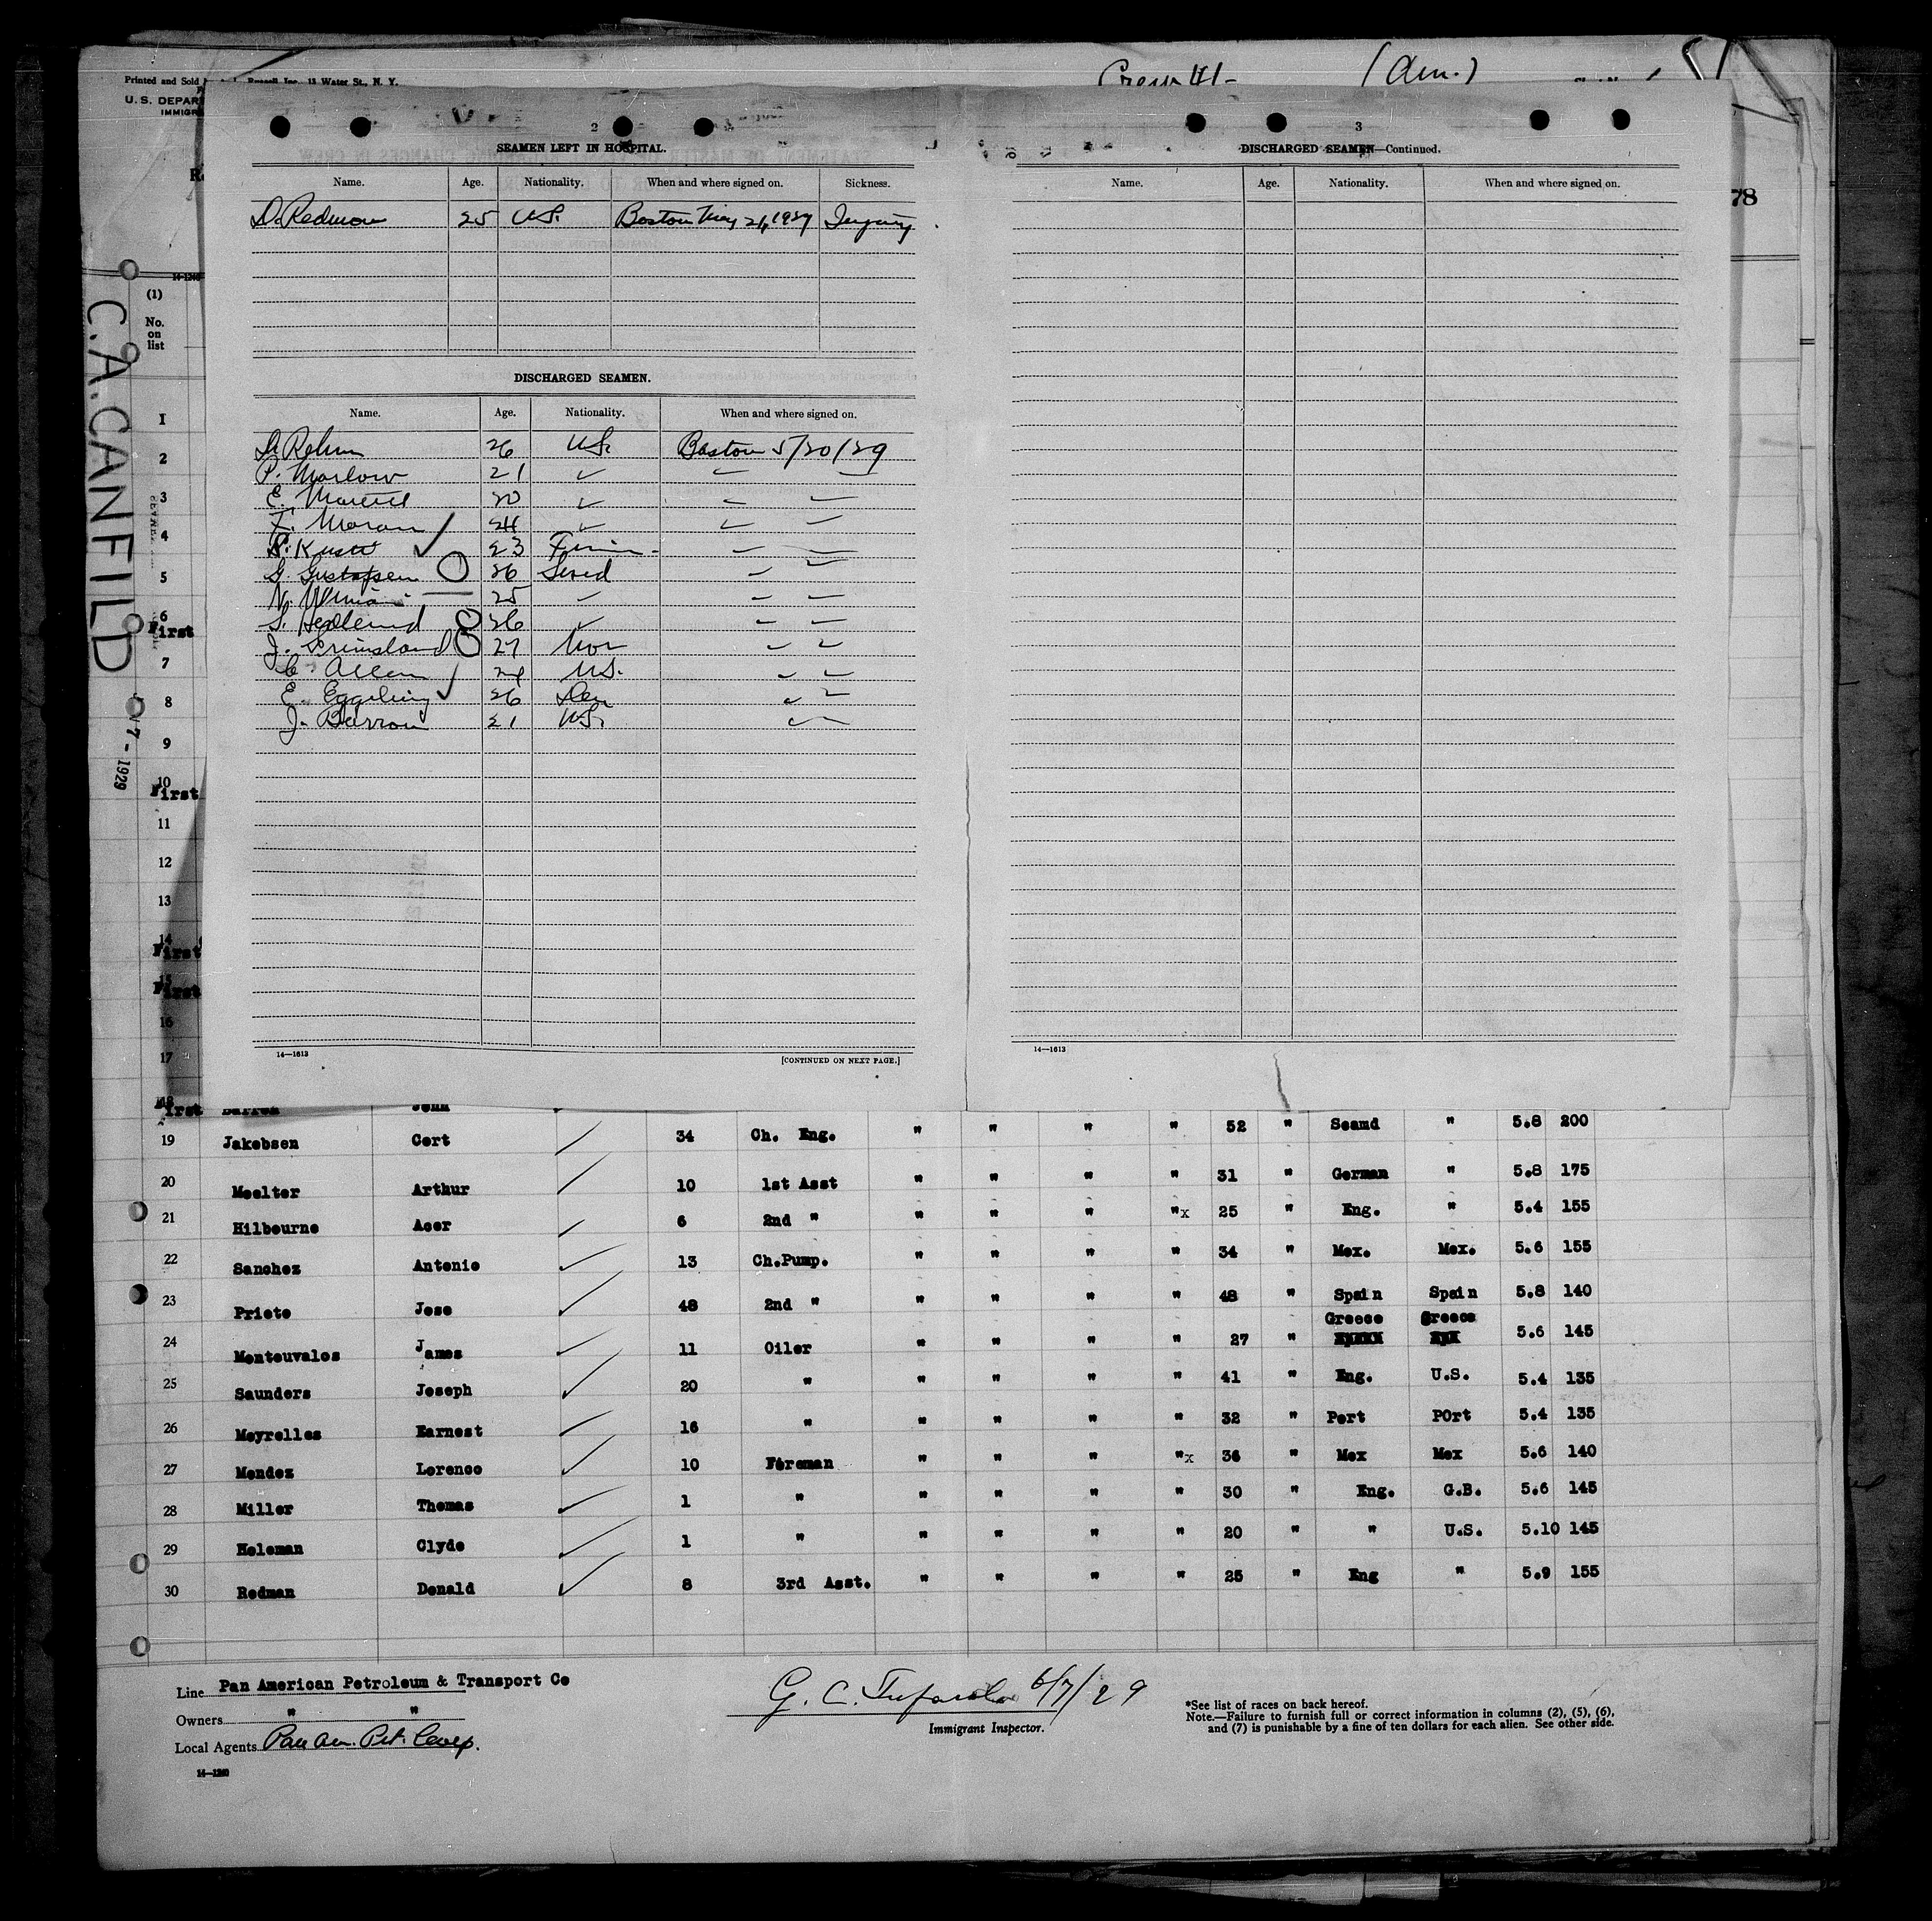 Printed and Sold
Inc., 13 Water St., N. Y.
U. S. DEPAR
IMMIGR
Crew 41-
(Am.)
78
14-1240
(1)
No.
on
list
C.A. CANFILD
7 - 1929
2
SEAMEN LEFT IN HOSPITAL.
Name. Age. Nationality. When and where signed on. Sickness.
D. Redmon 25 U.S. Boston May 21, 1929 Injury
DISCHARGED SEAMEN.
Name. Age. Nationality. When and where signed on.
26 U.S. Boston 5/20/29
P. Marlow 21 ✓
E. 20 ✓
F. Moran ✓ 24 ✓
23
G. Gustafsen 26 Swed
25
Hedlund 26
J. 27 Nor
C. Allen 24 U.S.
E. Eggeling ✓ 26 Den
J. Barron 21 U.S.
14—1613
[CONTINUED ON NEXT PAGE.]
3
DISCHARGED SEAMEN—Continued.
Name. Age. Nationality. When and where signed on.
14—1613
1
2
3
4
5
6
First
7
8
9
10
First
11
12
13
14
First
15
First
16
17
18
First Barron John
19 Jakobsen Cort 34 Ch. Eng. " " " " 52 " Scand " 5.8 200
20 Moelter Arthur 10 1st Asst " " " " 31 " German " 5.8 175
21 Hilbourne Acer 6 2nd " " " " "x 25 " Eng. " 5.4 155
22 Sanchez Antonio 13 Ch.Pump. " " " " 34 " Mex. Mex. 5.6 155
23 Prieto Jose 48 2nd " " " " " 48 " Spain Spain 5.8 140
Greece Greece
24 Montouvalos James 11 Oiler " " " " 27 " 5.6 145
25 Saunders Joseph 20 " " " " " 41 " Eng. U.S. 5.4 135
26 Meyrelles Earnest 16 " " " " " 32 " Port POrt 5.4 135
27 Mendez Lorenco 10 Fireman " " " "x 36 " Mex Mex 5.6 140
28 Miller Thomas 1 " " " " " 30 " Eng. G.B. 5.6 145
29 Holeman Clyde 1 " " " " " 20 " " U.S. 5.10 145
30 Redman Donald 8 3rd Asst. " " " " 25 " Eng " 5.9 155
Line Pan American Petroleum & Transport Co
Owners " "
Local Agents Pan Am. Pet. Corp.
14—1240
G. C. 6/7/29
Immigrant Inspector.
*See list of races on back hereof.
Note.—Failure to furnish full or correct information in columns (2), (5), (6),
and (7) is punishable by a fine of ten dollars for each alien. See other side.